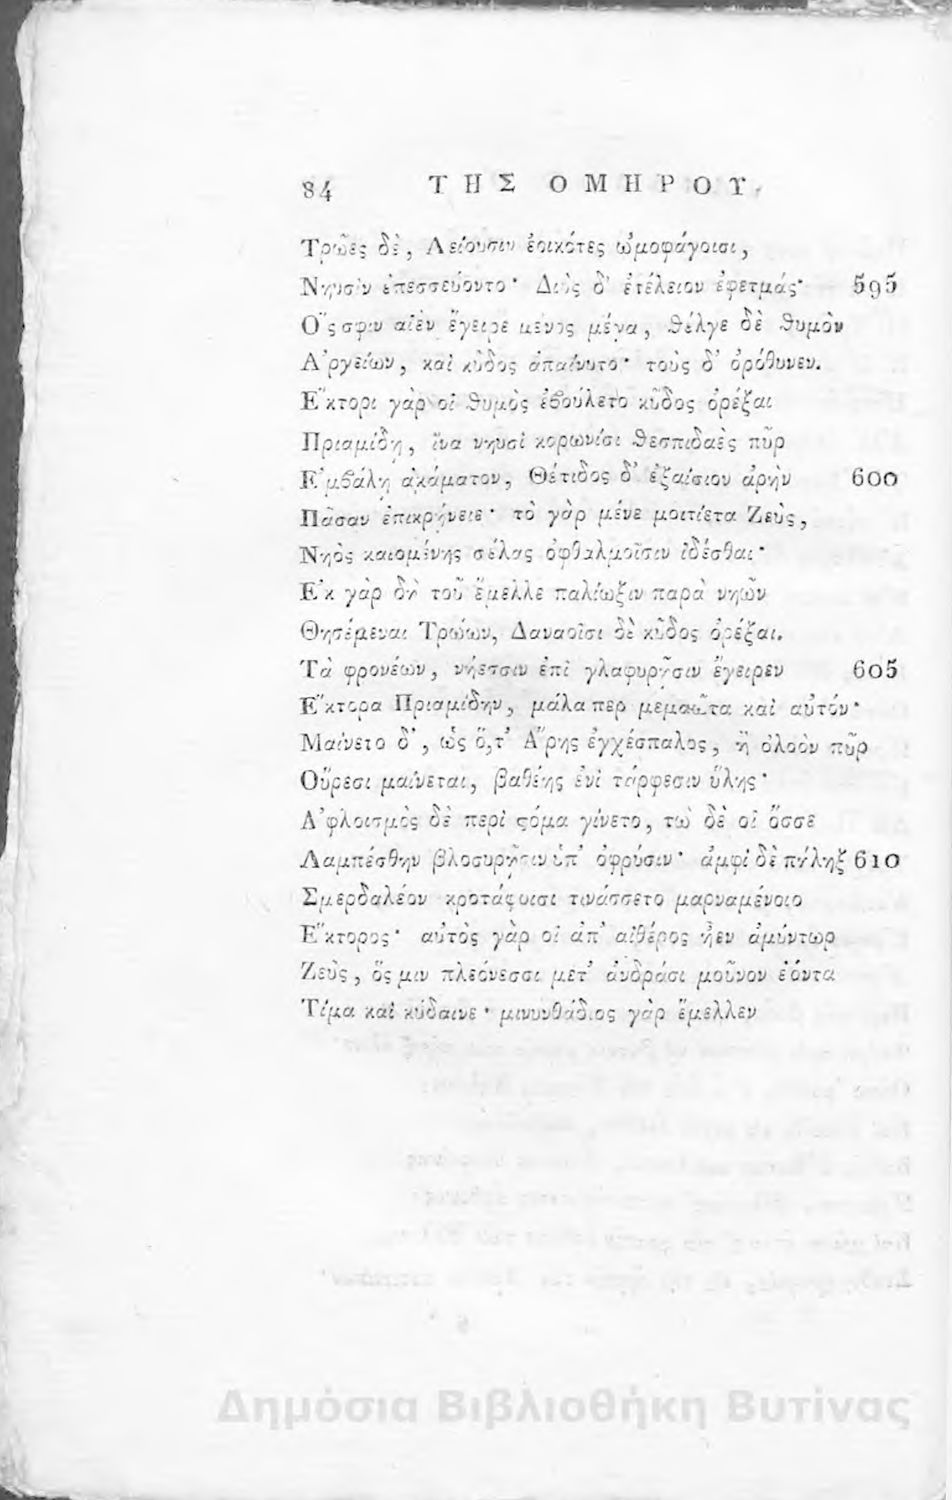 84 ΤΗΣ ΟΜΗΡΟΥ
Τρῶες δὲ, Λείουσιν ἐοικότες ὠμοφάγοισι,
Νηυσὶν ἐπεσσεύοντο· Διὸς δ' ἐτέλειον ἐφετμάς· 595
Ὅς σφιν αἰὲν ἔγειρε μένος μέγα, θέλγε δὲ θυμὸν
Ἀργείων, καὶ κῦδος ἀπαίνυτο· τοὺς δ' ὀρόθυνεν.
Ἕκτορι γὰρ οἱ θυμὸς ἐβούλετο κῦδος ὀρέξαι
Πριαμίδῃ, ἵνα νηυσὶ κορωνίσι θεσπιδαὲς πῦρ
Ἐμβάλῃ ἀκάματον, Θέτιδος δ' ἐξαίσιον ἀρὴν 600
Πᾶσαν ἐπικρήνειε· τὸ γὰρ μένε μοιτίετα Ζεὺς,
Νηὸς καιομένης σέλας ὀφθαλμοῖσιν ἰδέσθαι·
Ἐκ γὰρ δὴ τοῦ ἔμελλε παλίωξιν παρὰ νηῶν
Θησέμεναι Τρώων, Δαναοῖσι δὲ κῦδος ὀρέξαι.
Τὰ φρονέων, νήεσσιν ἐπὶ γλαφυρῇσιν ἔγειρεν 605
Ἕκτορα Πριαμίδην, μάλα περ μεμαῶτα καὶ αὐτόν·
Μαίνετο δ', ὡς ὅ,τ' Ἄρης ἐγχέσπαλος, ἢ ὀλοὸν πῦρ
Οὔρεσι μαίνεται, βαθέης ἐνὶ τάρφεσιν ὕλης·
Ἀφλοισμὸς δὲ περὶ ϛόμα γίνετο, τὼ δέ οἱ ὄσσε
Λαμπέσθην βλοσυρῇσιν ὑπ' ὀφρύσιν· ἀμφὶ δὲ πήληξ 610
Σμερδαλέον κροτάφοισι τινάσσετο μαρναμένοιο
Ἕκτορος· αὐτὸς γὰρ οἱ ἀπ' αἰθέρος ἦεν ἀμύντωρ
Ζεὺς, ὅς μιν πλεόνεσσι μετ' ἀνδράσι μοῦνον ἐόντα
Τίμα καὶ κύδαινε· μινυνθάδιος γὰρ ἔμελλεν
Δημόσια Βιβλιοθήκη Βυτίνας